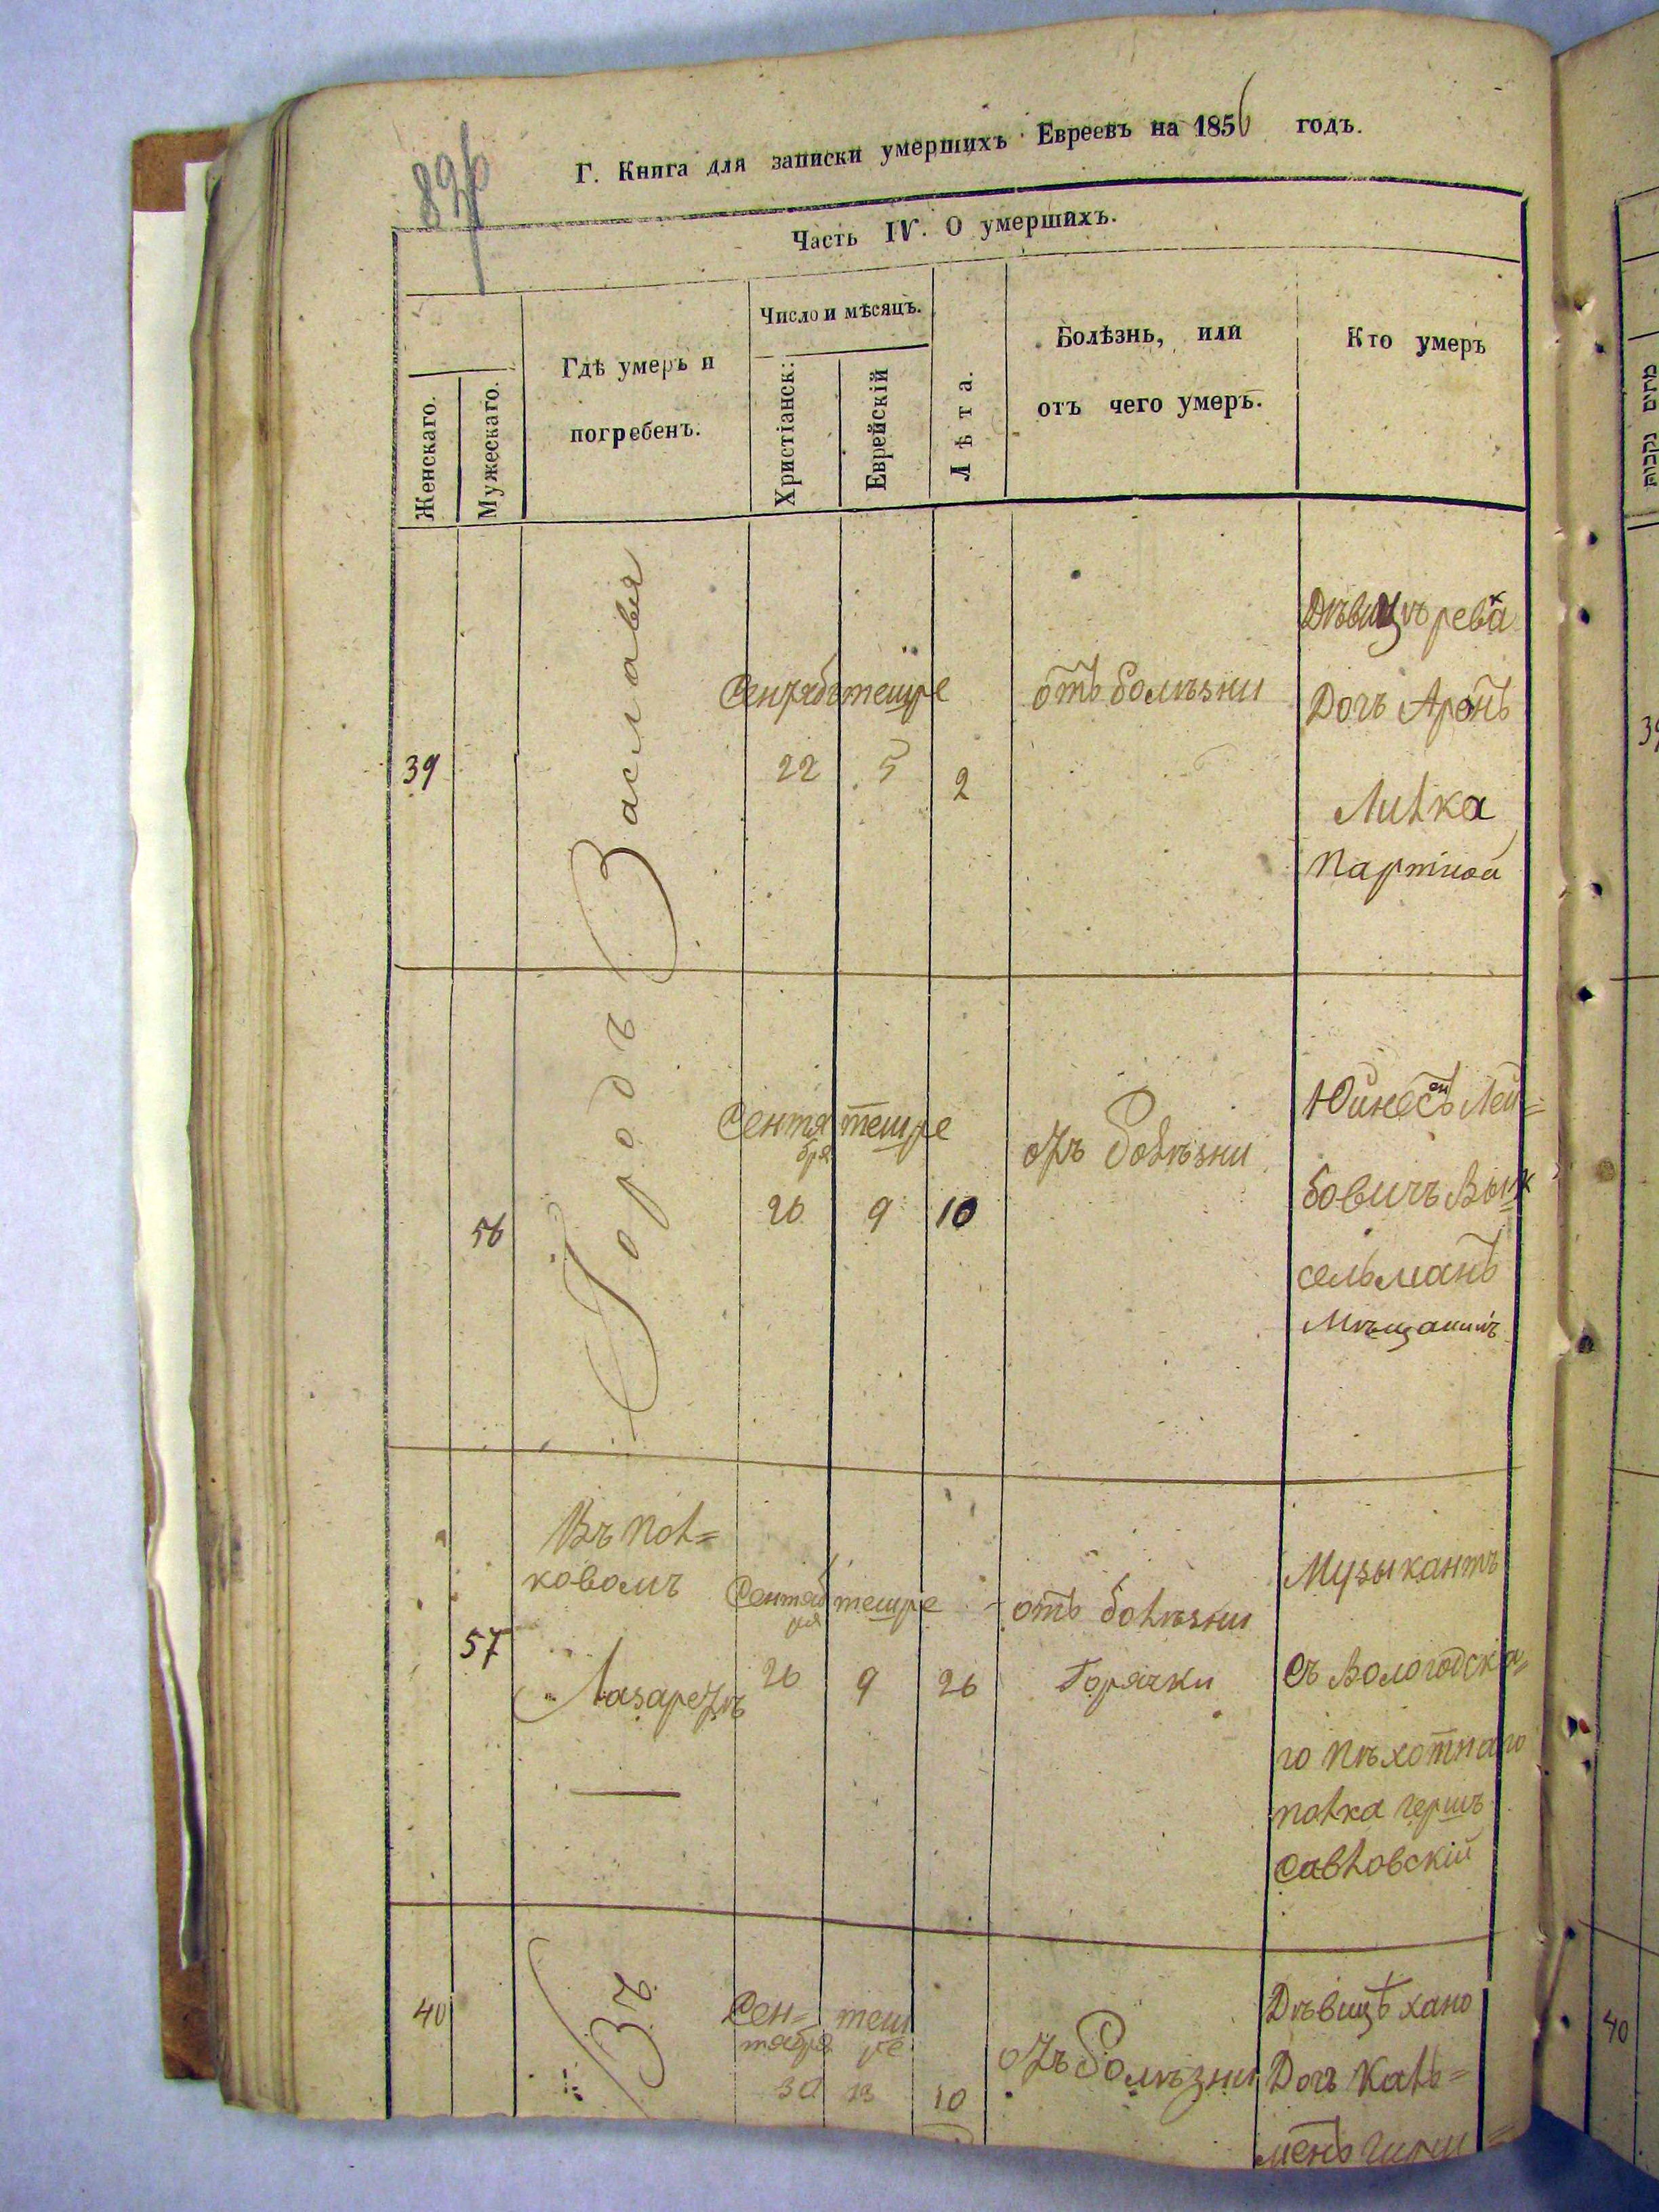 Г. Книга для записки умершихъ Евреевъ на 1856 годъ.
Часть IV. О умершихъ.
Женскаго.
Мужескаго.
Гдѣ умеръ и
погребенъ.
Число и мѣсяцъ.
Христіанск:
Еврейскій
Лѣта.
Болѣзнь, или
отъ чего умеръ.
Кто умеръ
39
Городъ Заславля
Сентяб тешре
22 5 2
отъ болѣзни
Дѣвицъ рева
Дочъ Аронъ
Лилка
Партной
56
Сентя тешре
бря
26 9 10
отъ болѣзни
Лей=
бовичъ
сельманъ
Мѣщанинъ
57
Въ пол=
ковомъ
Лазаретѣ
Сентяб тешре
ря
26 9 26
отъ болѣзни
Горячки
Музыкантъ
съ Вологодска=
го пѣхотнаго
полка гершъ
Савловскій
40
Въ
Сен= теш
тября ре
30 13 10
отъ болѣзни
Дѣвицѣ хано
Дочъ Каль=
менъ
מתים נקבות
39
40